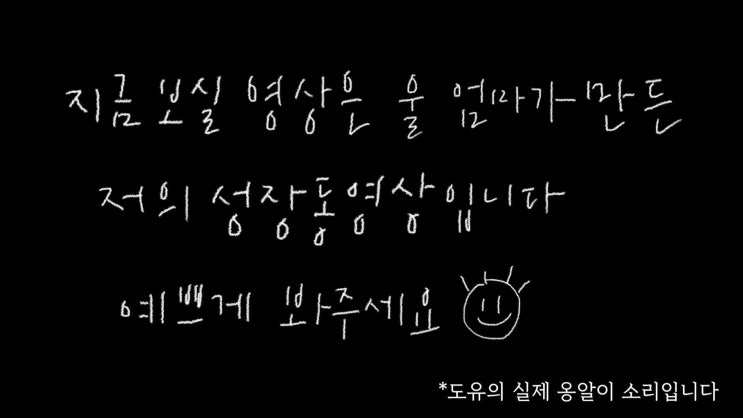 지금 보실 영상은 울 엄마가 만든
저의 성장동영상입니다
예쁘게 봐주세요
*도유의 실제 옹알이 소리입니다